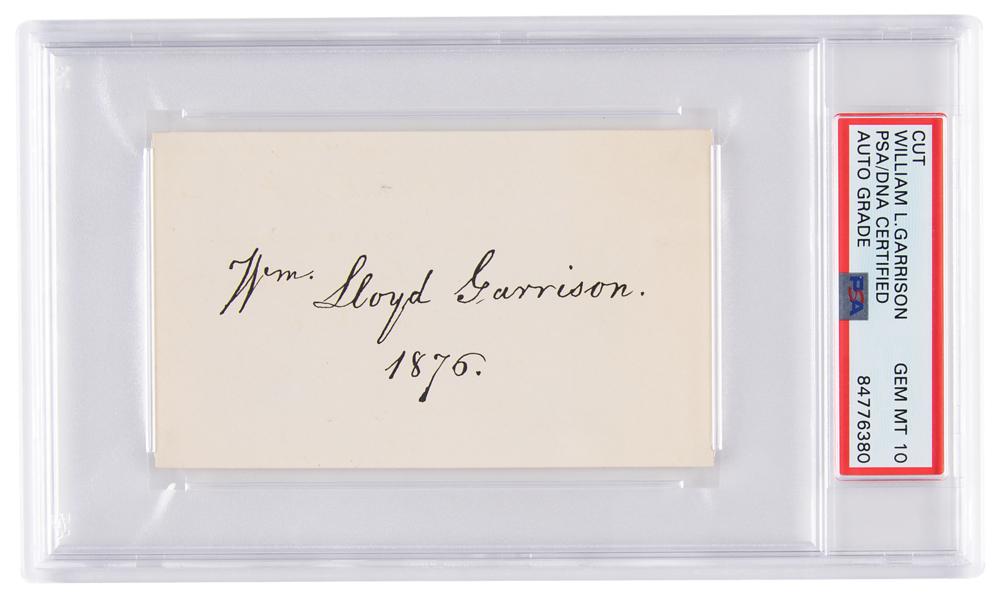 Wm. Lloyd Garrison.
1876.
CUT
WILLIAM L.GARRISON GEM MT 10
PSA/DNA CERTIFIED
AUTO GRADE 84776380
PSA